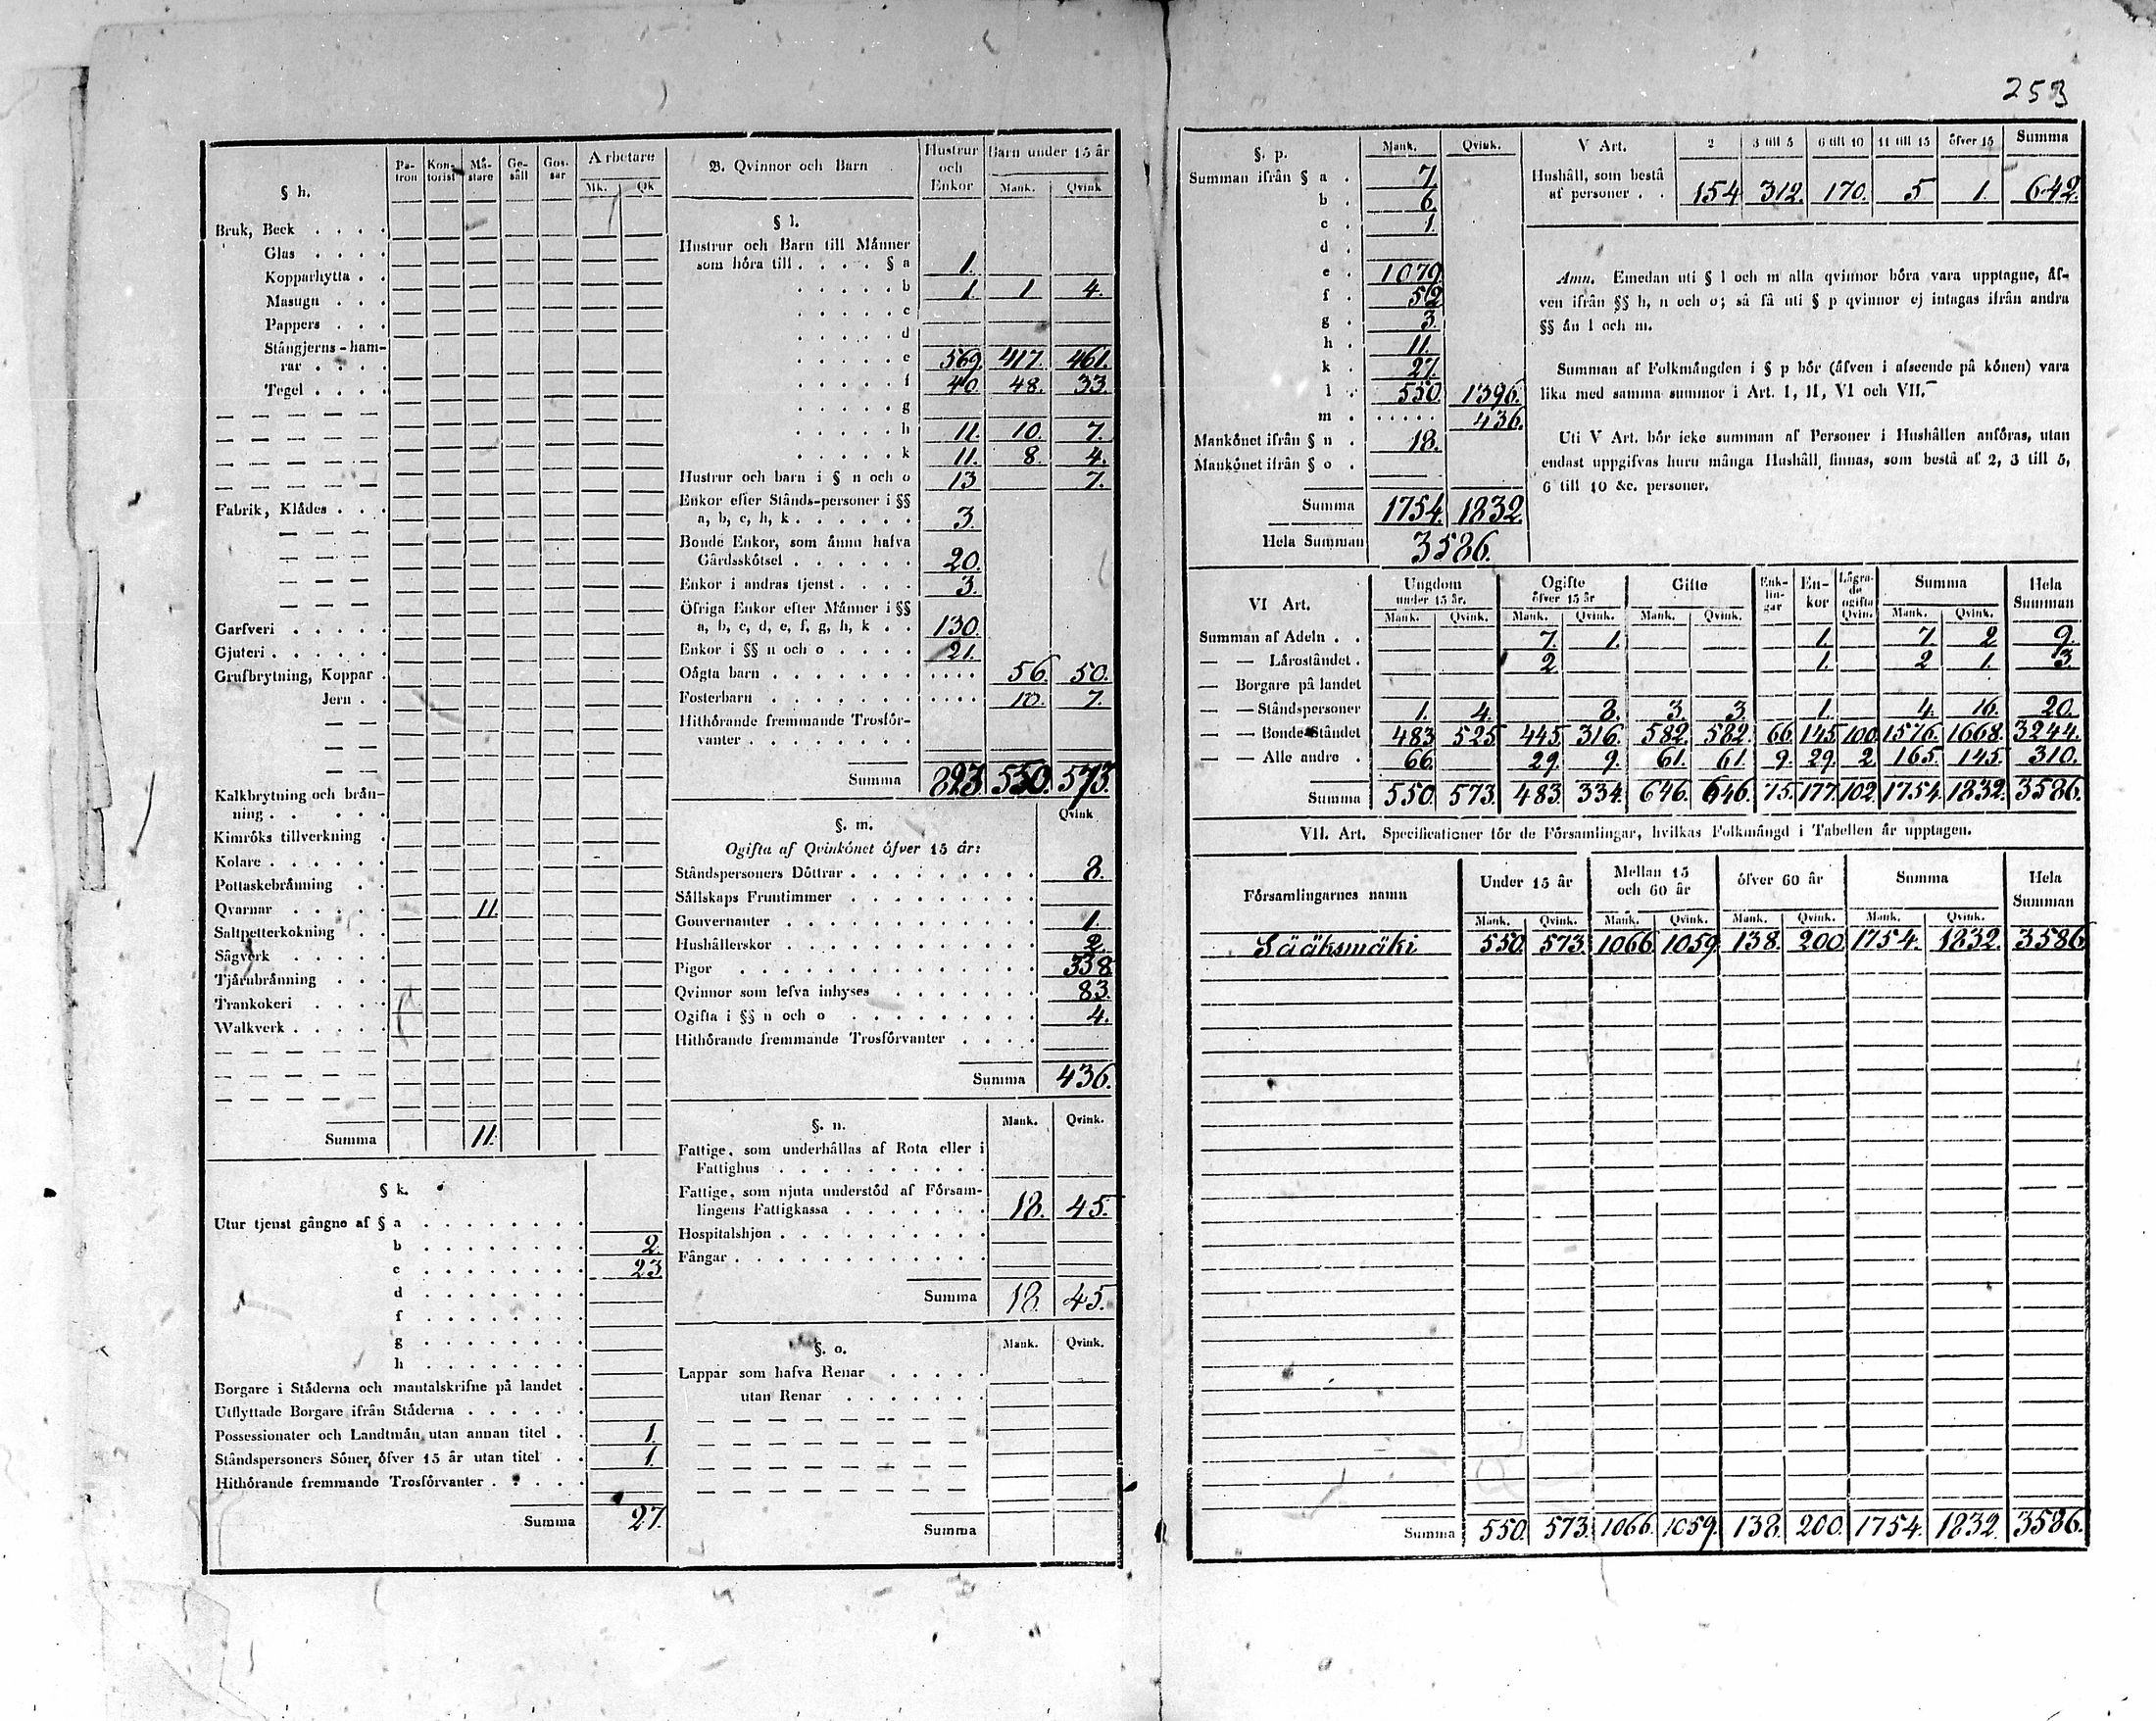 253
§ h.
Pa-tron Kon-torist Må-stare Ge-såll Gos-sar Arbetare
Mk. Qk
Bruk, Beck . . . .
Glas . . . .
Kopparhytta . .
Masugn . . .
Pappers . . .
Stångjerns-ham-
rar . . . .
Tegel . . . .
Fabrik, Klådes . . .
Garfveri . . . . .
Gjuteri . . . . . .
Grufbrytning, Koppar .
Jern . .
Kalkbrytning och brån-
ning . . . . .
Kimróks tillverkning .
Kolare . . . . . .
Pottaskebrånning . .
Qvarnar . . . . . 11.
Saltpetterkokning . .
Sågverk . . . . .
Tjårubrånning . . .
Trankokeri . . . .
Walkverk . . . . .
Summa 11.
§ k.
Utur tjenst gångne af § a . . . . . . . .
b . . . . . . . . 2.
c . . . . . . . . 23
d . . . . . . . .
f . . . . . . . .
g . . . . . . . .
h . . . . . . . .
Borgare i Ståderna och mantalskrifne på landet .
Utflyttade Borgare ifrån Ståderna . . . . . .
Possessionater och Landtmån utan annan titel . . 1.
Ståndspersoners Sóner, ófver 15 år utan titel . . 1.
Hithórande fremmande Trosfórvanter . . . .
Summa 27.
B. Qvinnor och Barn
Hustrur och Enkor Barn under 15 år
Mank. Qvink
§ l.
Hustrur och Barn till Månner
som hóra till . . . . § a 1.
. . . . . b 1. 1 4.
. . . . . c
. . . . . d
. . . . . e 569. 417. 461.
. . . . . f 40 48. 33
. . . . . g
. . . . . h 11. 10. 7.
. . . . . k 11. 8. 4.
Hustrur och barn i § n och o 13 7.
Enkor efter Stånds-personer i §§
a, b, c, h, k . . . . . . 3.
Bonde Enkor, som ånnu hafva
Gårdsskótsel . . . . . . 20.
Enkor i andras tjenst . . . . 3.
Öfriga Enkor efter Månner i §§
a, b, c, d, e, f, g, h, k . . 130.
Enkor i §§ n och o . . . . 21.
Oågta barn . . . . . . . . . . . 56. 50.
Fosterbarn . . . . . . . . . . . 10. 7.
Hithórande fremmande Trosfór-
vanter . . . . . . . .
Summa 823. 550. 573.
§. m.
Qvink
Ogifta af Qvinkónet ófver 15 år:
Ståndspersoners Dóttrar . . . . . . . . . 8.
Sållskaps Fruntimmer . . . . . . . . .
Gouvernanter . . . . . . . . . . . . 1.
Hushållerskor . . . . . . . . . . . . 2.
Pigor . . . . . . . . . . . . . . 338
Qvinnor som lefva inhyses . . . . . . . 83.
Ogifta i §§ n och o . . . . . . . . . 4.
Hithórande fremmande Trosfórvanter . . . .
Summa 436.
§. n.
Mank. Qvink.
Fattige, som underhållas af Rota eller i
Fattighus . . . . . . . . . .
Fattige, som njuta understód af Fórsam-
lingens Fattigkassa . . . . . . . 18. 45.
Hospitalshjon . . . . . . . . . .
Fångar . . . . . . . . . . . .
Summa 18. 45.
§. o.
Mank. Qvink.
Lappar som hafva Renar . . . . .
utan Renar . . . . . . .
Summa
§. p.
Mank. Qvink.
Summan ifrån § a . 7.
b . 6.
c . 1.
d .
e . 1079
f . 52
g . 3.
h . 11.
k . 27.
l . 550. 1396.
m . . . . . . 436.
Mankónet ifrån § n . 18.
Mankónet ifrån § o .
Summa 1754. 1832.
Hela Summan 3586.
V Art. 2 3 till 5 6 till 10 11 till 15 ófver 15 Summa
Hushåll, som bestå
af personer . . 154 312. 170. 5 1. 642.
Anm. Emedan uti § l och m alla qvinnor bóra vara upptagne, åf-
ven ifrån §§ h, n och o; så få uti § p qvinnor ej intagas ifrån andra
§§ ån l och m.
Summan af Folkmångden i § p bór (åfven i afseende på kónen) vara
lika med samma summor i Art. I, II, VI och VII.
Uti V Art. bór icke summan af Personer i Hushållen anfóras, utan
endast uppgifvas huru många Hushåll finnas, som bestå af 2, 3 till 5,
6 till 10 &c. personer.
VI Art.
Ungdom under 15 år. Ogifte ófver 15 år Gifte Enk-lin-gar En-kor Lågra-de ogifta Qvin. Summa Hela Summan
Mank. Qvink. Mank. Qvink. Mank. Qvink. Mank. Qvink.
Summan af Adeln . . 7. 1. 1. 7. 2 9.
— — Låroståndet . 2 1. 2 1. 3
— Borgare på landet
— — Ståndspersoner 1. 4. 8. 3. 3. 1. 4. 16. 20.
— — Bonde Ståndet 483 525 445 316. 582. 582. 66. 145 100 1576. 1668. 3244.
— — Alle andre . 66. 29. 9. 61. 61. 9. 29. 2. 165. 145. 310.
Summa 550. 573. 483. 334. 646. 646. 75. 177. 102. 1754. 1832. 3586.
VII. Art. Specificationer fór de Fórsamlingar, hvilkas Folkmångd i Tabellen år upptagen.
Fórsamlingarnes namn Under 15 år Mellan 15 och 60 år ófver 60 år Summa Hela Summan
Mank. Qvink. Mank. Qvink. Mank. Qvink. Mank. Qvink.
Sääksmäki 550. 573. 1066. 1059. 138. 200. 1754. 1832. 3586
Summa 550. 573. 1066. 1059. 138. 200. 1754. 1832. 3586.